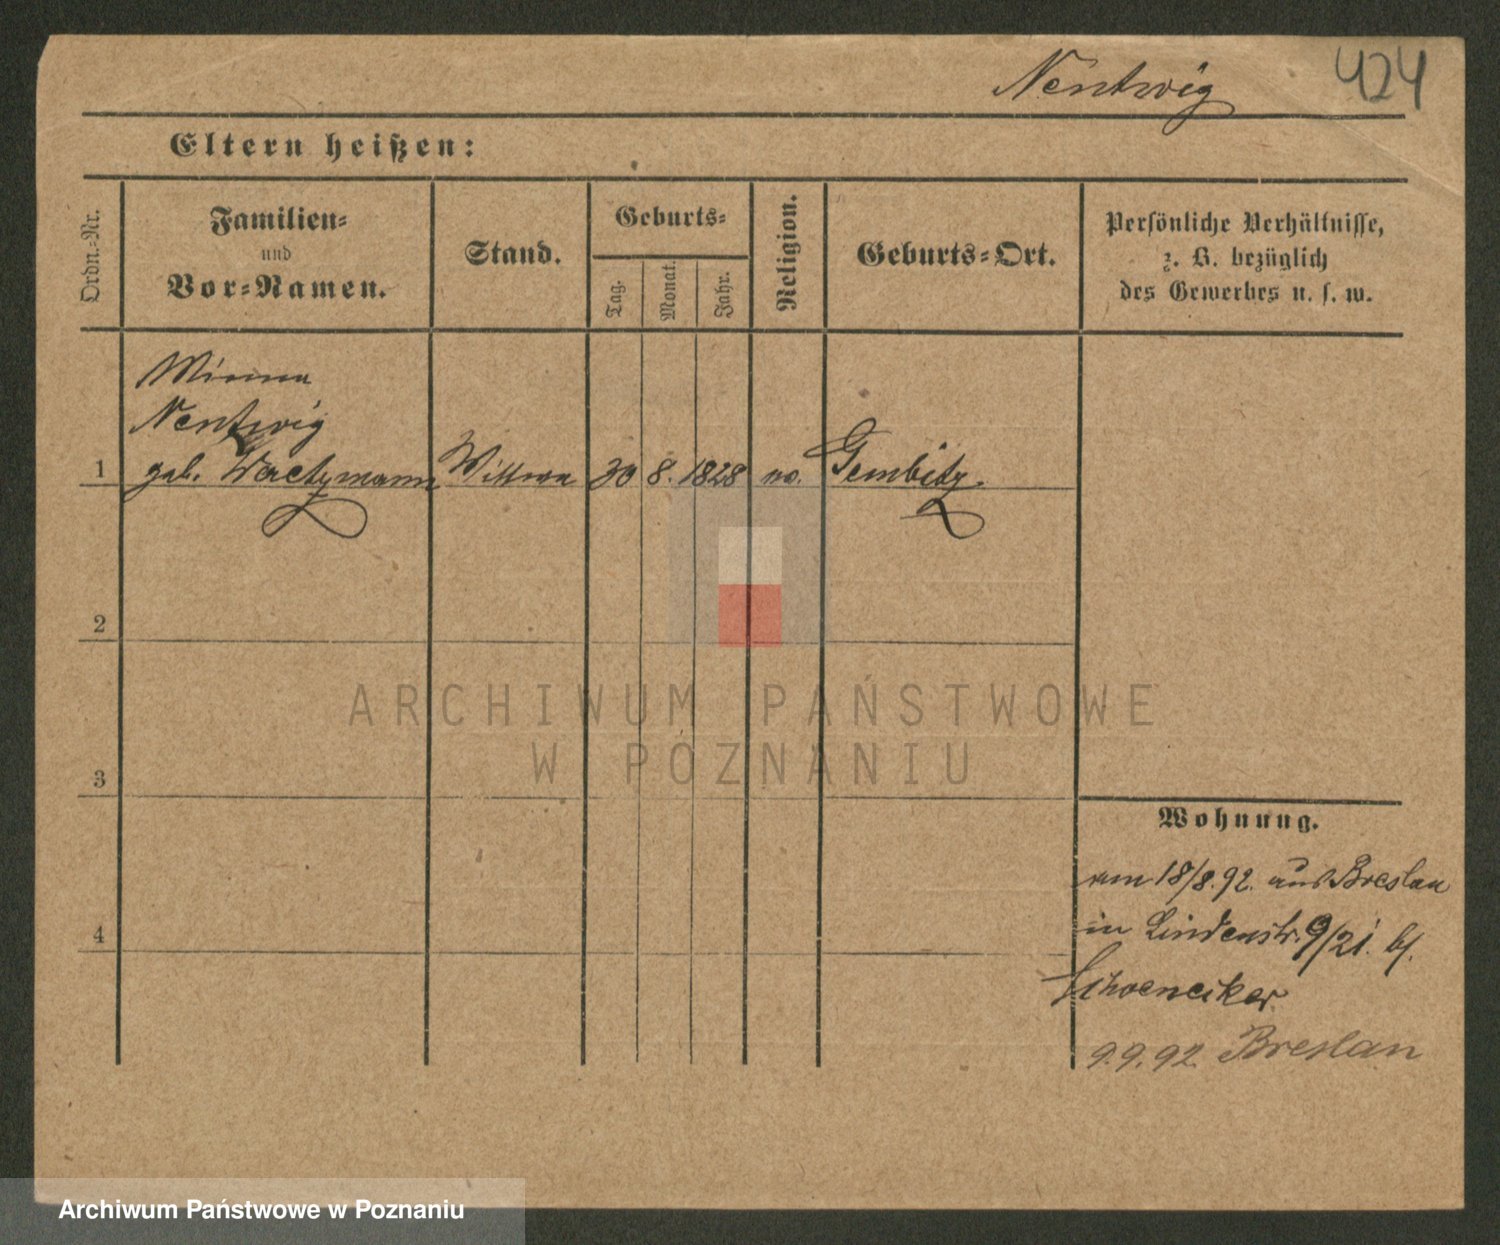 Nentwig 424
Eltern heißen:
Ordn.-Nr.
Familien-
und
Vor-Namen.
Stand.
Geburts-
Tag.
Monat.
Jahr.
Religion.
Geburts-Ort.
Persönliche Verhältnisse,
z. B. bezüglich
des Gewerbes u. s. w.
Minna
Nentwig
1 geb. Wachtzmann Wittwe 30 8. 1828 ev. Gembitz
2
ARCHIWUM PAŃSTWOWE
W POZNANIU
3
Wohnung.
am 18/8.92. aus Breslau
4 in Lindenstr. 9/21. bf.
Schoenecker
9.9.92 Breslau
Archiwum Państwowe w Poznaniu